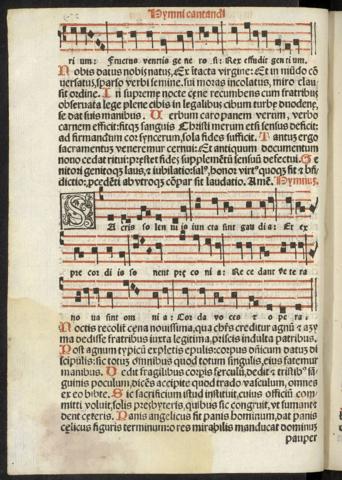 Hymni cantandi
ri um: Fructus ventris ge ne ro si: Rex effudit gen ti um.
Nobis datus nobis natus, Ex itacta virgine: Et in mūdo cō
versatus, sparso verbi semine, sui moras incolatus, miro clau
sit ordine. In supreme nocte cęne recumbens cum fratribus
observata lege plene cibis in legalibus cibum turbę duodenę,
se dat suis manibus. Verbum caro panem verum, verbo
carnem efficit: fitqȝ sanguis Christi merum etsi sensus deficit:
ad firmandum cor syncerum, sola fides sufficit. Tantus ergo
sacramentus veneremur cernui: Et antiquum documentum
novo cedat ritui: prestet fides supplemētū sensuū defectui. Ge
nitori genitoqȝ laus, et iubilatio: sal', honor virt' quoqȝ sit et bn̄
dictio; pcedēti ab vtroqȝ cōpar sit laudatio. Amē. Hymnus.
S Acris so len ni is iun cta sint gau di a: Et ex
pre cor di is so nent prę co ni a: Re ce dant ve te ra
no va sint om ni a: Cor da vo ces et o pe ra.
Noctis recolit cena nouissima, qua chr̄s creditur agnū et azy
ma dedisse fratribus iuxta legitima, priscis indulta patribus.
Post agnum typicū expletis epulis: corpus dn̄icum datū di
scipulis: sic totus omnibus quod totum singulis, eius fatemur
manibus. Dedit fragilibus corpis ferculū, dedit et tristib' sā
guinis poculum, dicēs accipite quod trado vasculum, omnes
ex eo bibite. Sic sacrificium istud instituit, cuius officiū com
mitti voluit, solis presbyteris, quibus sic congruit, vt sumant et
dent cęteris. Panis angelicus fit panis hominum, dat panis
cęlicus figuris terminum: o res mirabilis manducat dominus
pauper